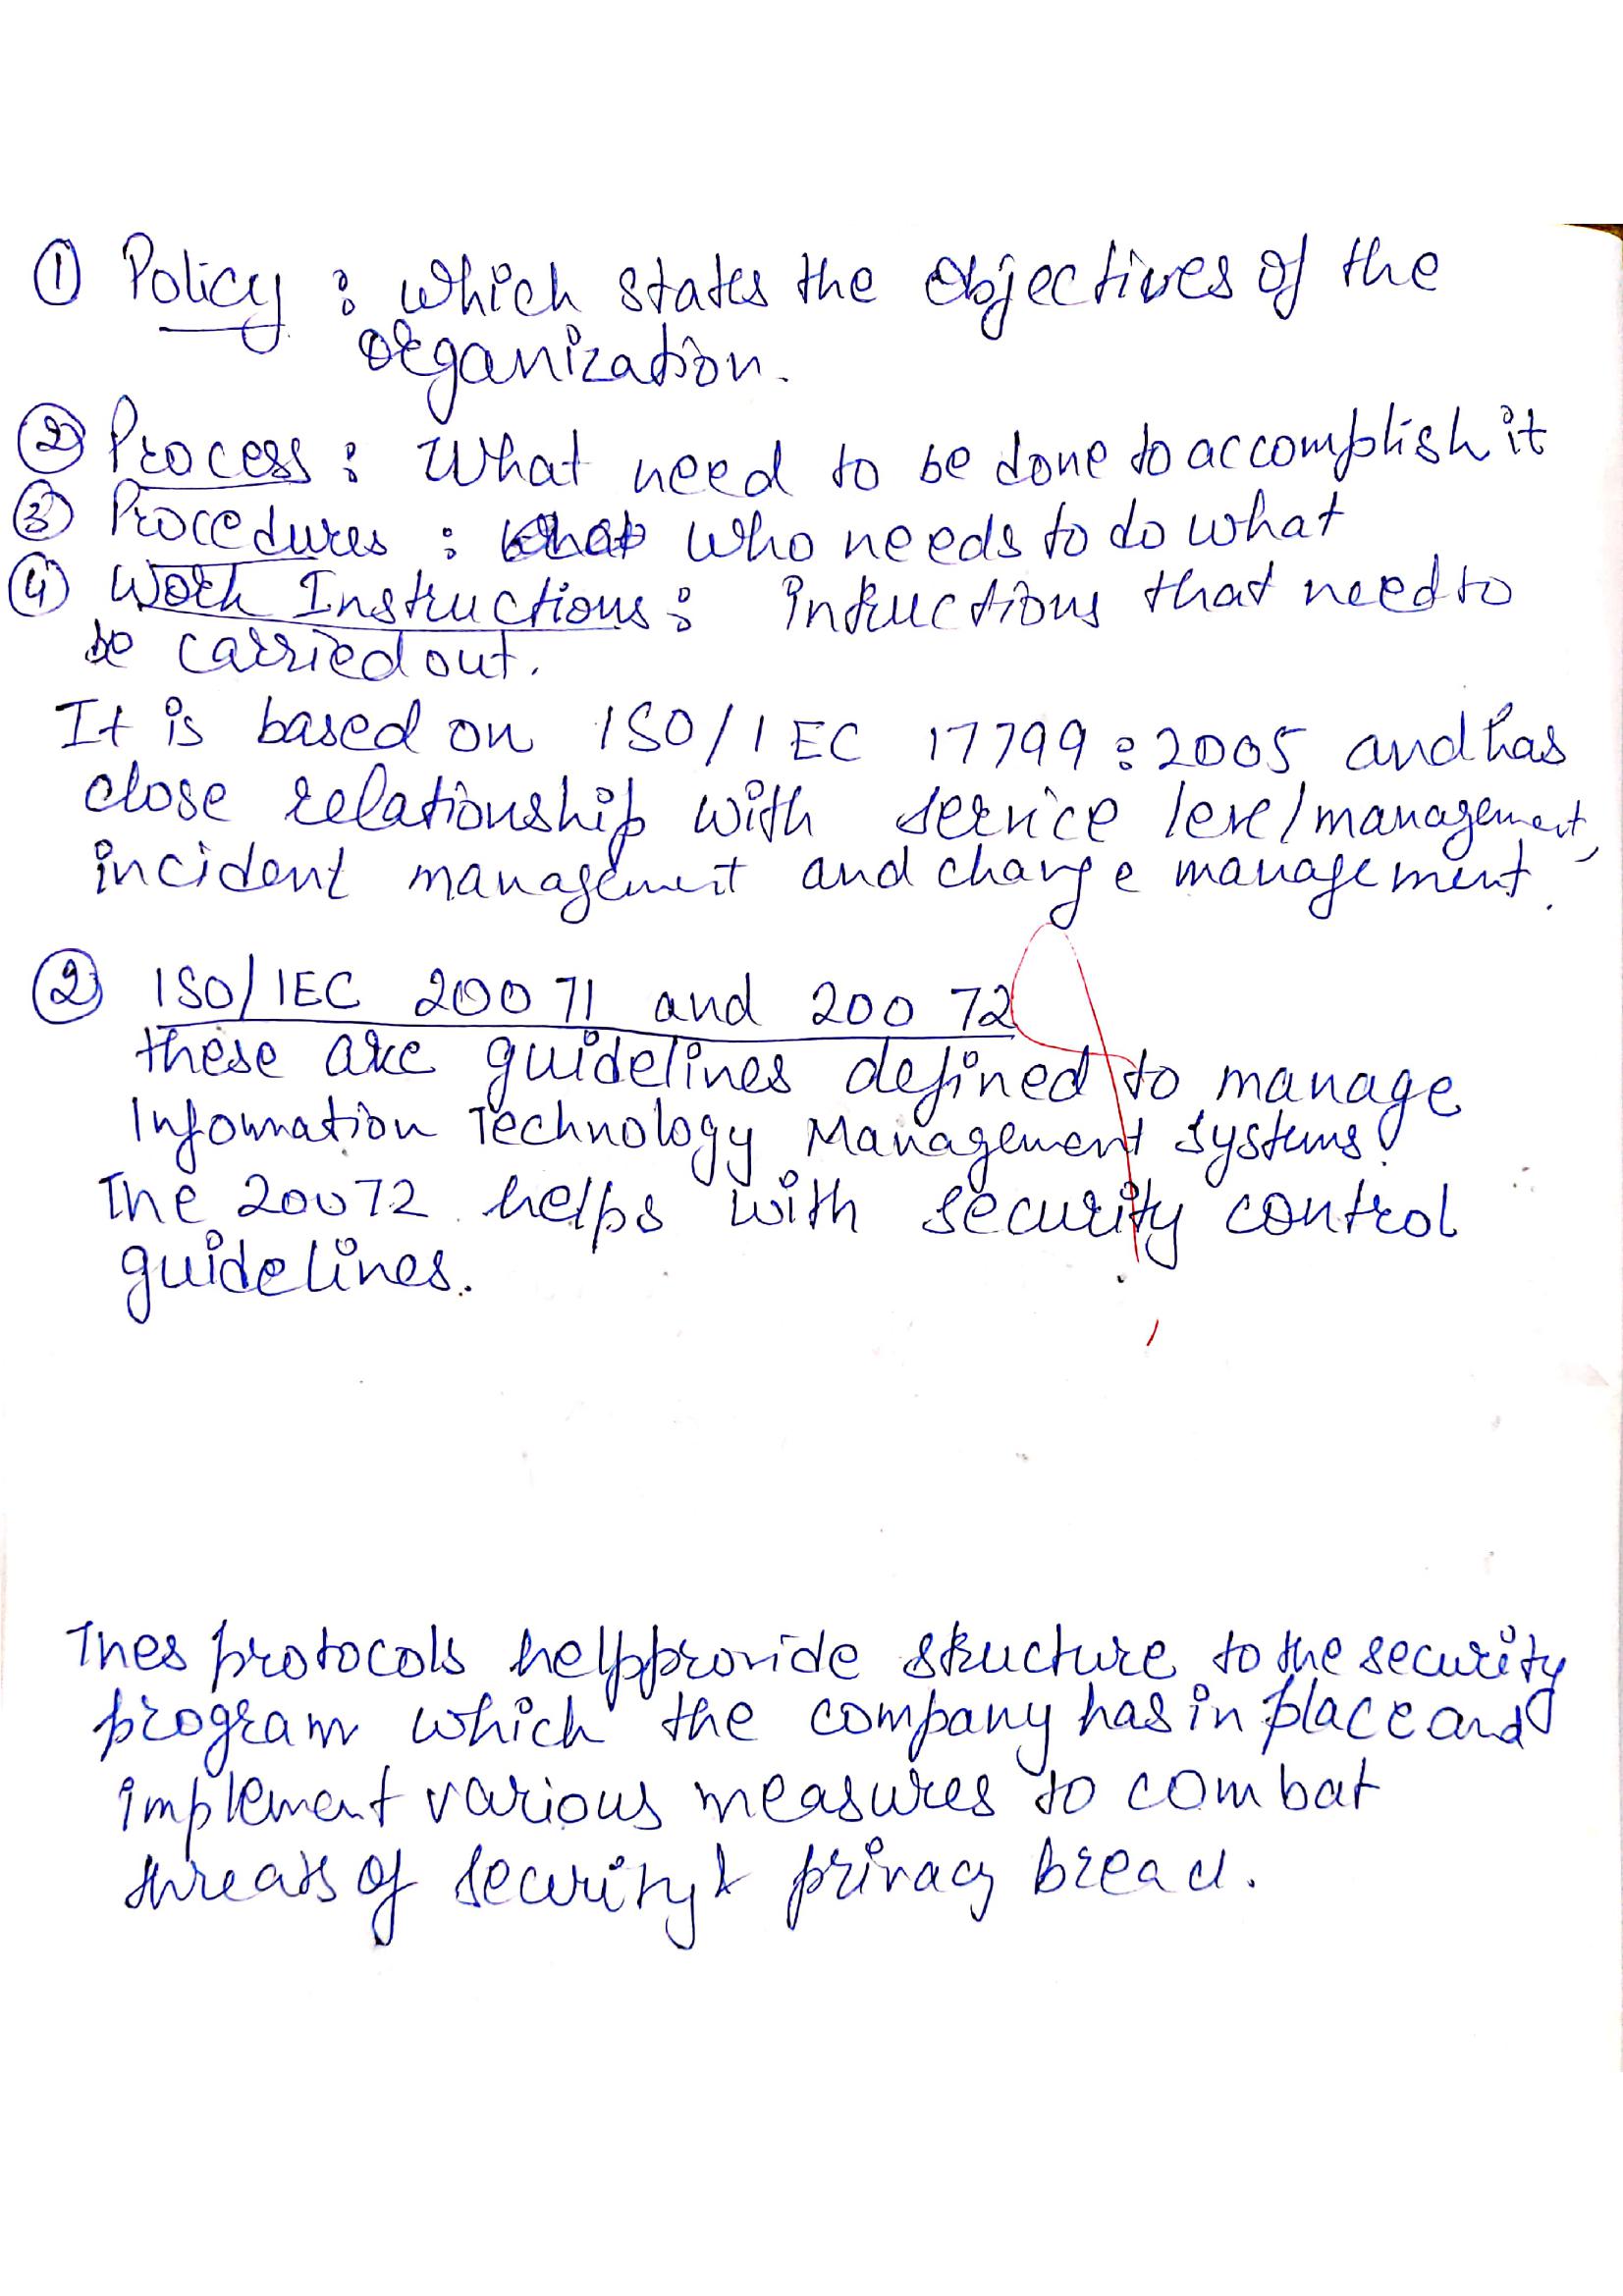 ① Policy : which states the objectives of the
organization.
② Process : What need to be done to accomplish it
③ Procedures : who needs to do what
④ Work Instructions : intructions that need to
be carried out.
It is based on ISO/IEC 17799:2005 and has
close relationship with service level management,
incident management and change management.
② ISO/IEC 20071 and 20072
these are guidelines defined to manage
Information Technology Management systems.
The 20072 helps with security control
guidelines.
Thes protocols help provide structure to the security
program which the company has in place and
implement various measures to combat
threats of security & privacy breach.